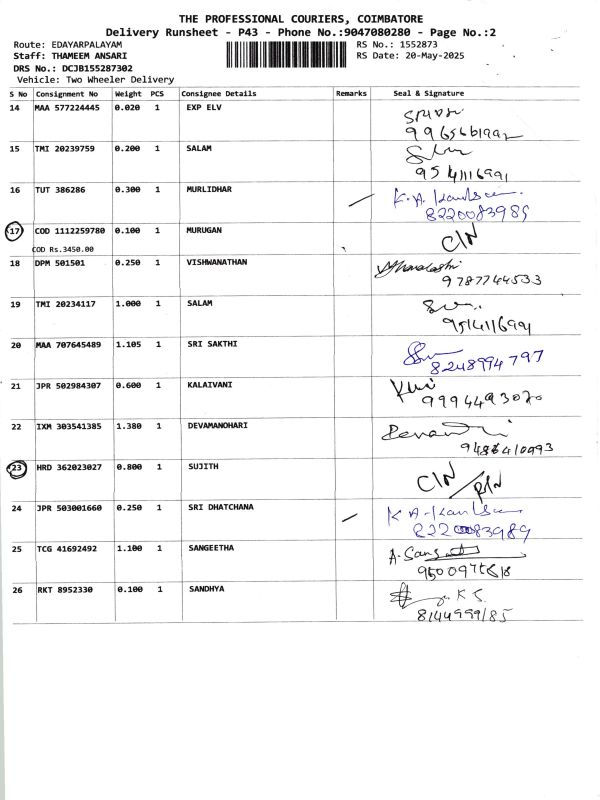 THE PROFESSIONAL COURIERS, COIMBATORE
Delivery Runsheet - P43 - Phone No.:9047080280 - Page No.:2
Route: EDAYARPALAYAM RS No.: 1552873
Staff: THAMEEM ANSARI RS Date: 20-May-2025
DRS No.: DCJB155287302
Vehicle: Two Wheeler Delivery
S No Consignment No Weight PCS Consignee Details Remarks Seal & Signature
14 MAA 577224445 0.020 1 EXP ELV
15 TMI 20239759 0.200 1 SALAM
16 TUT 386286 0.300 1 MURLIDHAR
8220083989
17 COD 1112259780 0.100 1 MURUGAN C/N
COD Rs.3450.00
18 DPM 501501 0.250 1 VISHWANATHAN
9787744533
19 TMI 20234117 1.000 1 SALAM
20 MAA 707645489 1.105 1 SRI SAKTHI
8248994797
21 JPR 502984307 0.600 1 KALAIVANI
22 IXM 303541385 1.380 1 DEVAMANOHARI
23 HRD 362023027 0.800 1 SUJITH C/N
24 JPR 503001660 0.250 1 SRI DHATCHANA
25 TCG 41692492 1.100 1 SANGEETHA
26 RKT 8952330 0.100 1 SANDHYA
8144999185